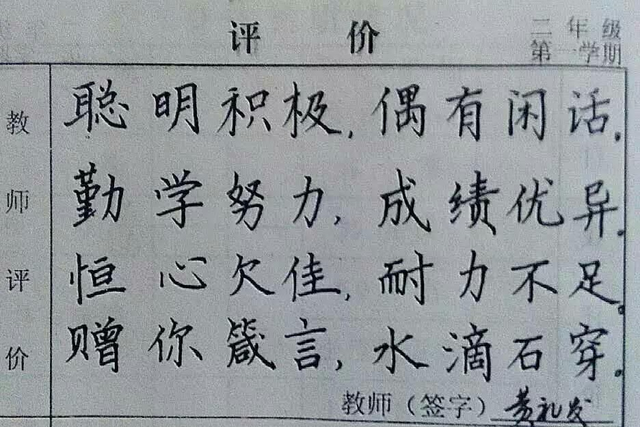 评 价
二年级
第一学期
教师评价
聪明积极,偶有闲话。
勤学努力,成绩优异。
恒心欠佳,耐力不足。
赠你箴言,水滴石穿。
教师(签字)黄礼发